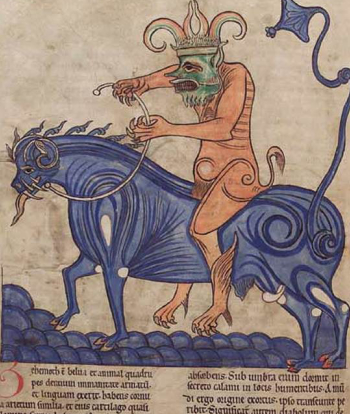 Behemoth ē belua et animal quadru
pes dentium inmanitate armatū.
et linguam exerit. habens cornu
a arietum similia. et eius cartilago quasi
absorbens. Sub umbra enim dormit in
secreto calami in locis humentibus. A mū
di ergo origine exortus. ipso transeunte pe
ribit. Significat autem diabolum qui de